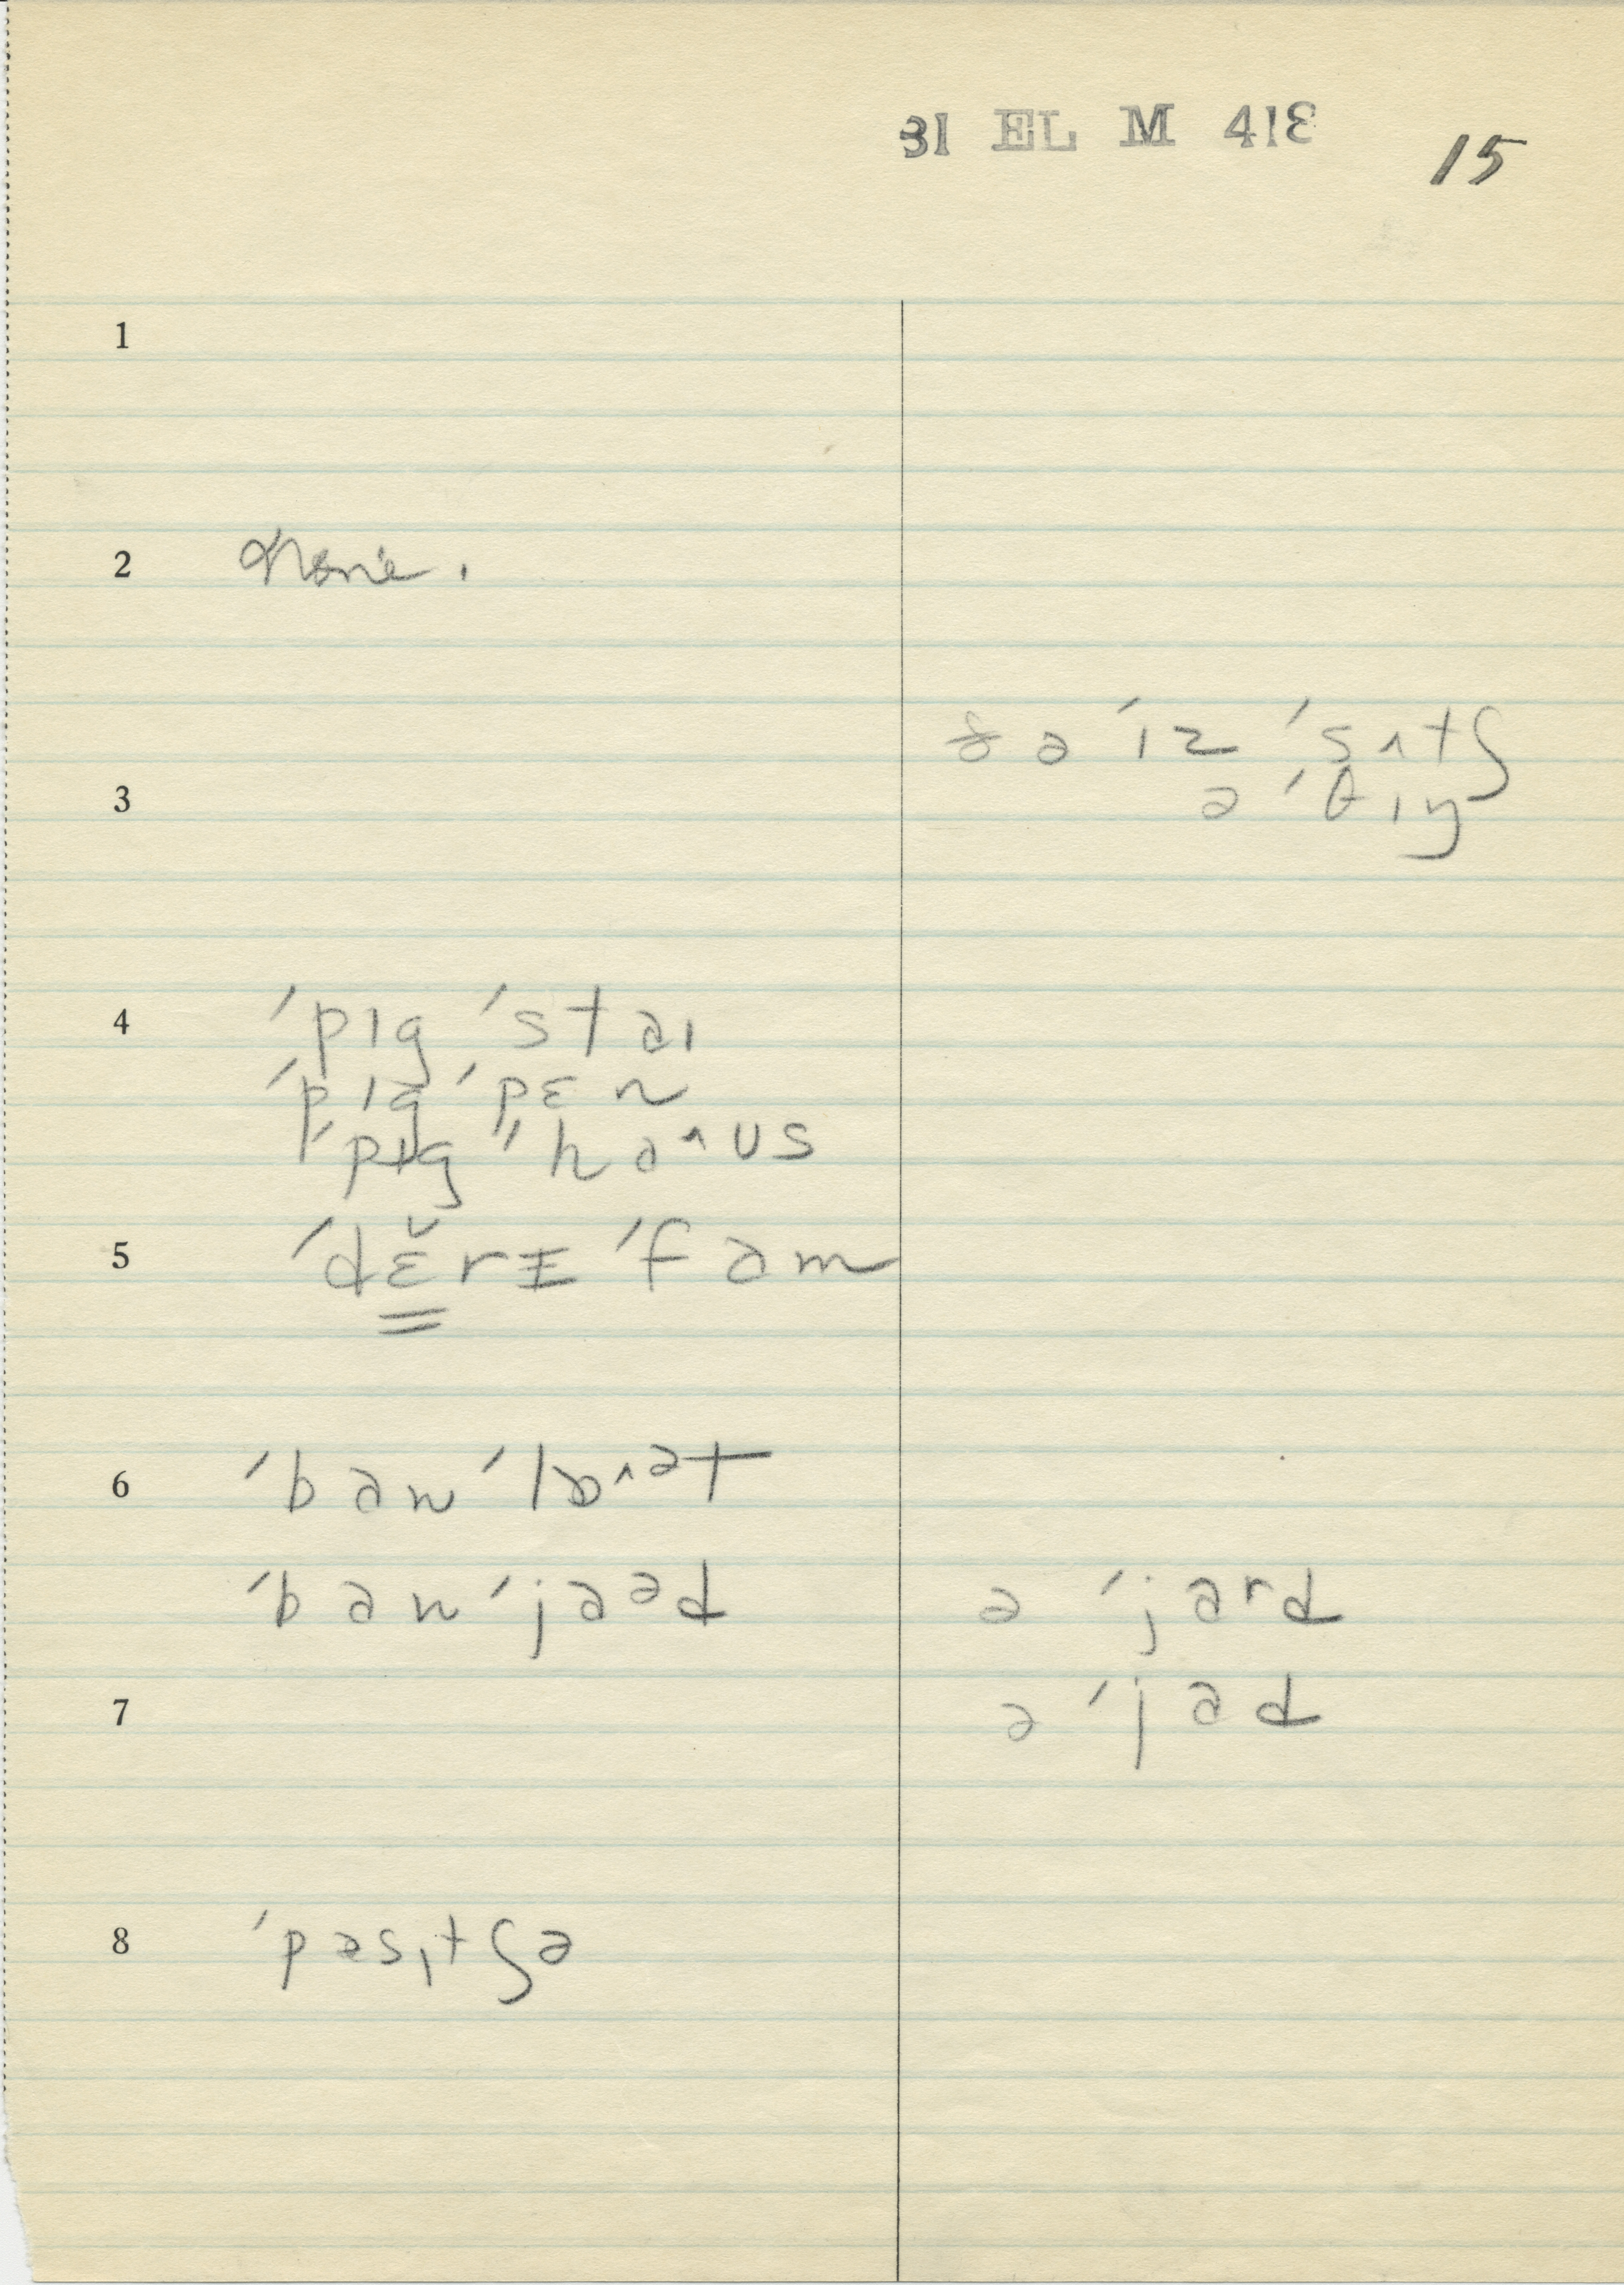 31 EL M 418 15
1
2 None.
ðə ˈɪz ˈsʌtʃ
3 ə ˈθɪŋ
4 ˈpɪg ˈstaɪ
ˈpɪg ˈpɛn
ˈpɪg ˈˈha^ʊs
5 ˈdɛ̆rɪ ˈfam
6 ˈban ˈlɒ^ᵊt
ˈban ˈjaᵊd ə ˈjaʳd
7 ə ˈjad
8 ˈpæsˌtʃə